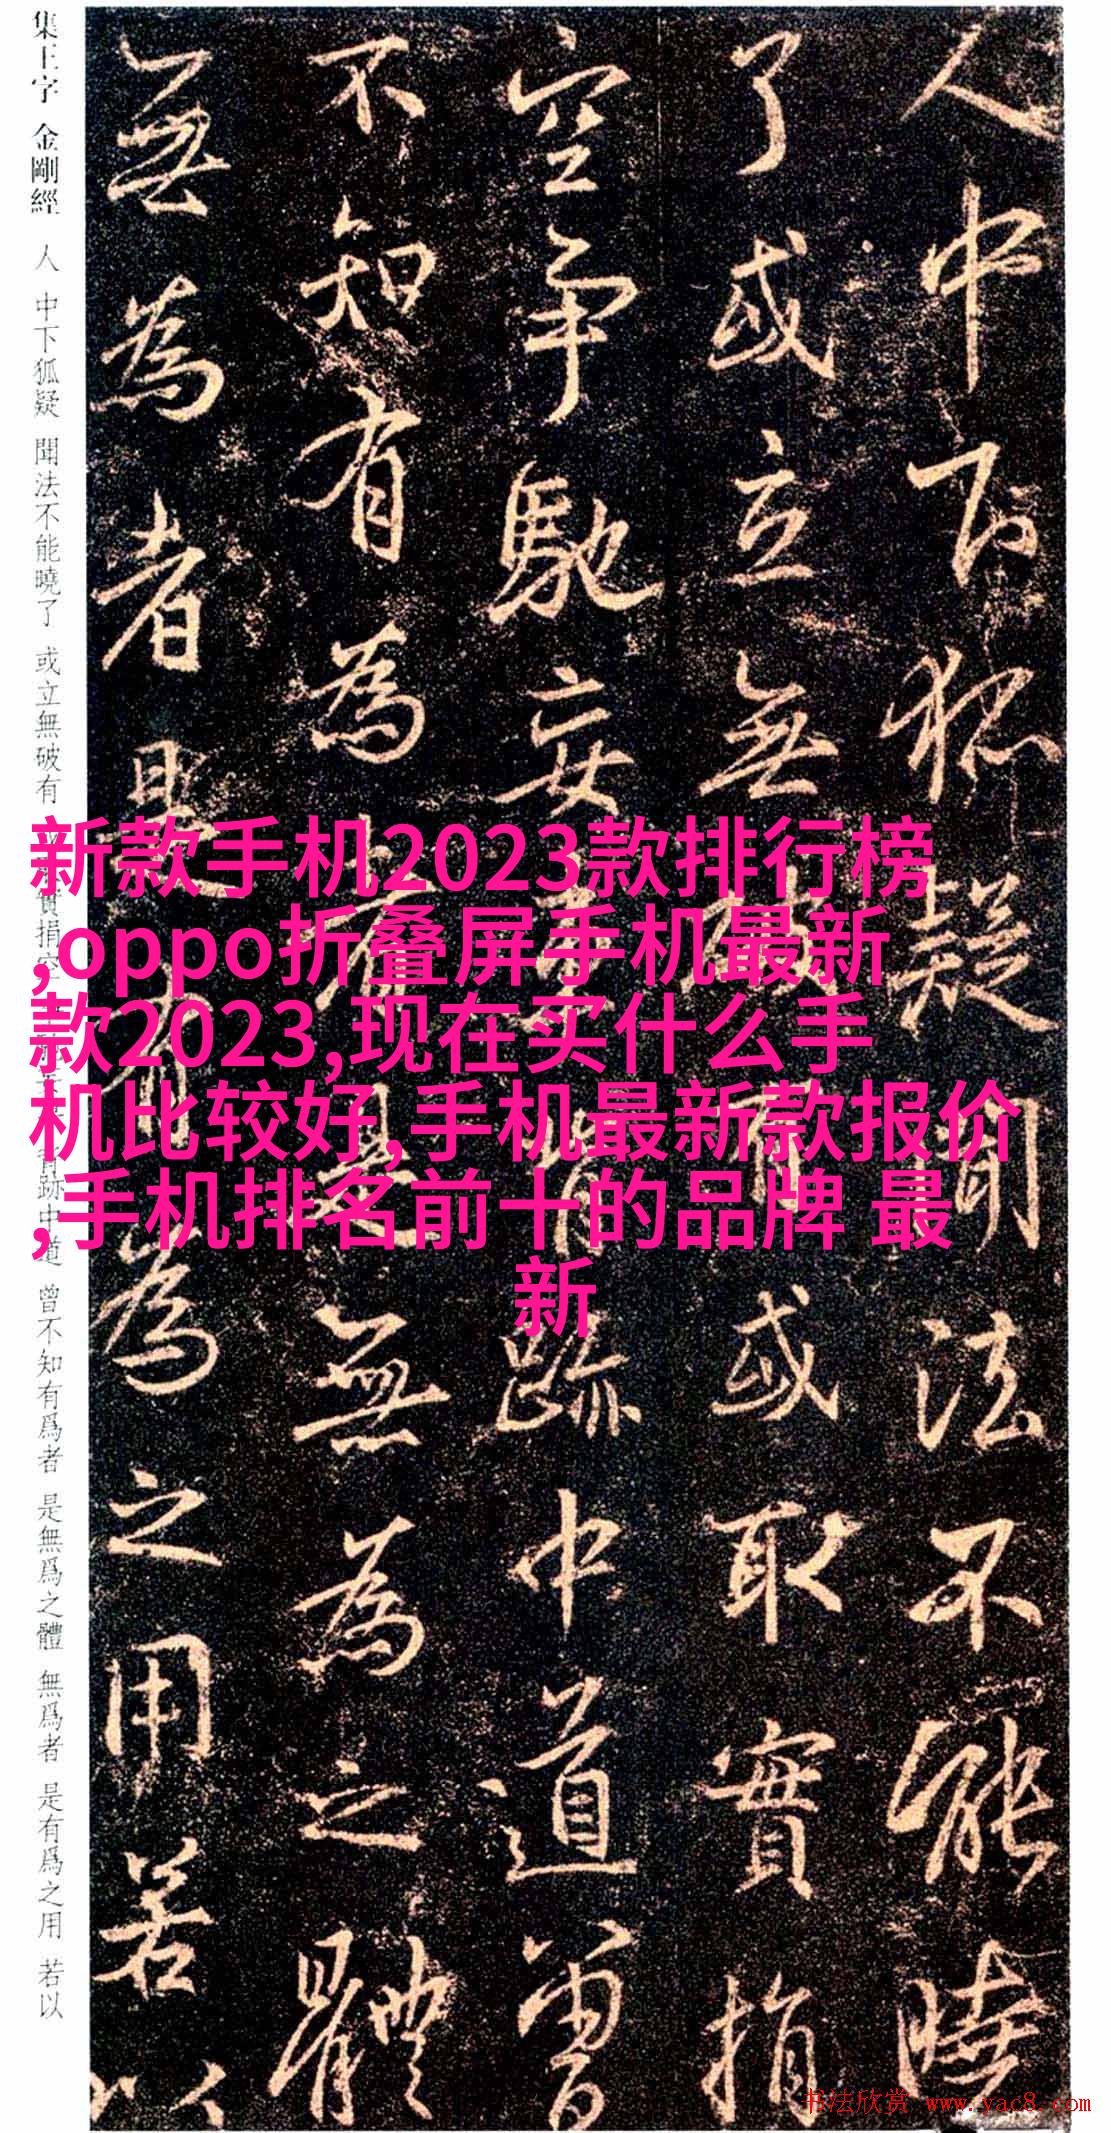 人中下狐疑聞法不能曉
了或立無破有或取實捐
空爭馳妄情跡中道曾
不知有為者是無為之體
無為者是有為之用若以
集王字 金剛經 人 中下狐疑 聞法不能曉了 或立無破有 實捐 跡中道 曾不知有爲者 是無爲之體 無爲者 是有爲之用 若以
新款手机2023款排行榜
,oppo折叠屏手机最新
款2023,现在买什么手
机比较好,手机最新款报价
,手机排名前十的品牌 最
新
书法欣赏 www.yac8.com